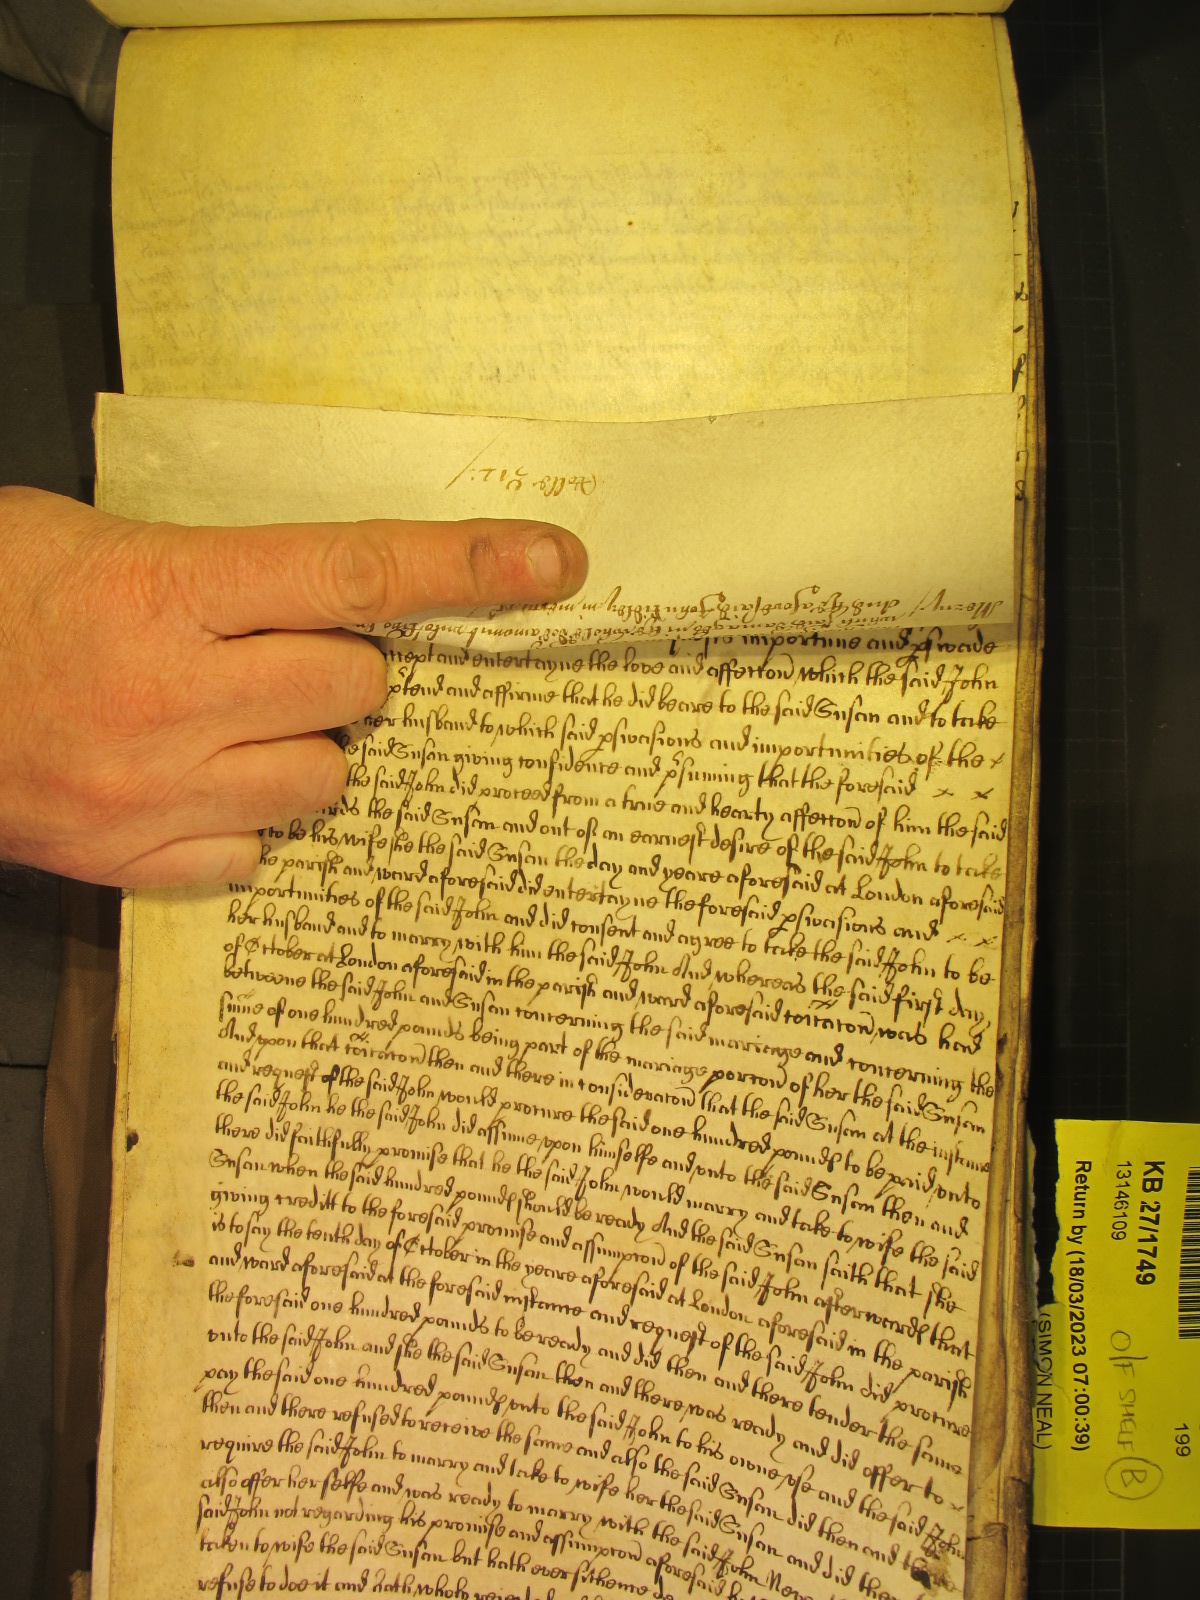 importune and p̱swade
accept and entertayne the love and affecc̃on which the said John
p̱tend and affirme that he did beare to the said Susan and to take
her husband to which said p̱swasions and importunities of the
the said Susan giving confidence and p̱suming that the foresaid
the said John did proceed from a true and hearty affecc̃on of him the said
the said Susan and out of an earnest desire of the said John to take
to be his wife she the said Susan the day and yeare aforesaid at London aforesaid
the parish and ward aforesaid did entertayne the foresaid p̱swasions and
importunities of the said John and did consent and agree to take the said John to be
her husband and to marry with him the said John And whereas the said first day
of October at London aforesaid in the parish and ward aforesaid cõicac̃on was had
betweene the said John and Susan concerning the said mariage and concerning the
sum̃e of one hundred pounds being part of the mariage porc̃on of her the said Susan
And upon that cõicac̃on then and there in considerac̃on that the said Susan at the instance
and request of the said John would procure the said one hundred pounds to be paid unto
the said John he the said John did assume upon himselfe and unto the said Susan then and
there did faithfully promise that he the said John would marry and take to wife the said
Susan when the said hundred pounds should be ready And the said Susan saith that she
giving creditt to the foresaid promise and assumpc̃on of the said John afterwards that
is to say the tenth day of October in the yeare aforesaid at London aforesaid in the parish
and ward aforesaid at the foresaid instance and request of the said John did procure
the foresaid one hundred pounds to be ready and did then and there tender the same
unto the said John and she the said Susan then and there was ready and did offer to
pay the said one hundred pounds unto the said John to his owne use and the said John
then and there refused to receive the same and also the said Susan did then and there
require the said John to marry and take to wife her the said Susan and did then
also offer her selfe and was ready to marry with the said John
said John not regarding his promise and assumpc̃on aforesaid
taken to wife the said Susan but hath ever sithence
refuse to doe it and hath wholy
KB 27/1749
13146109
Return by (18/03/2023 07:00:39)
(SIMON NEAL)
199
O/F SHELF B